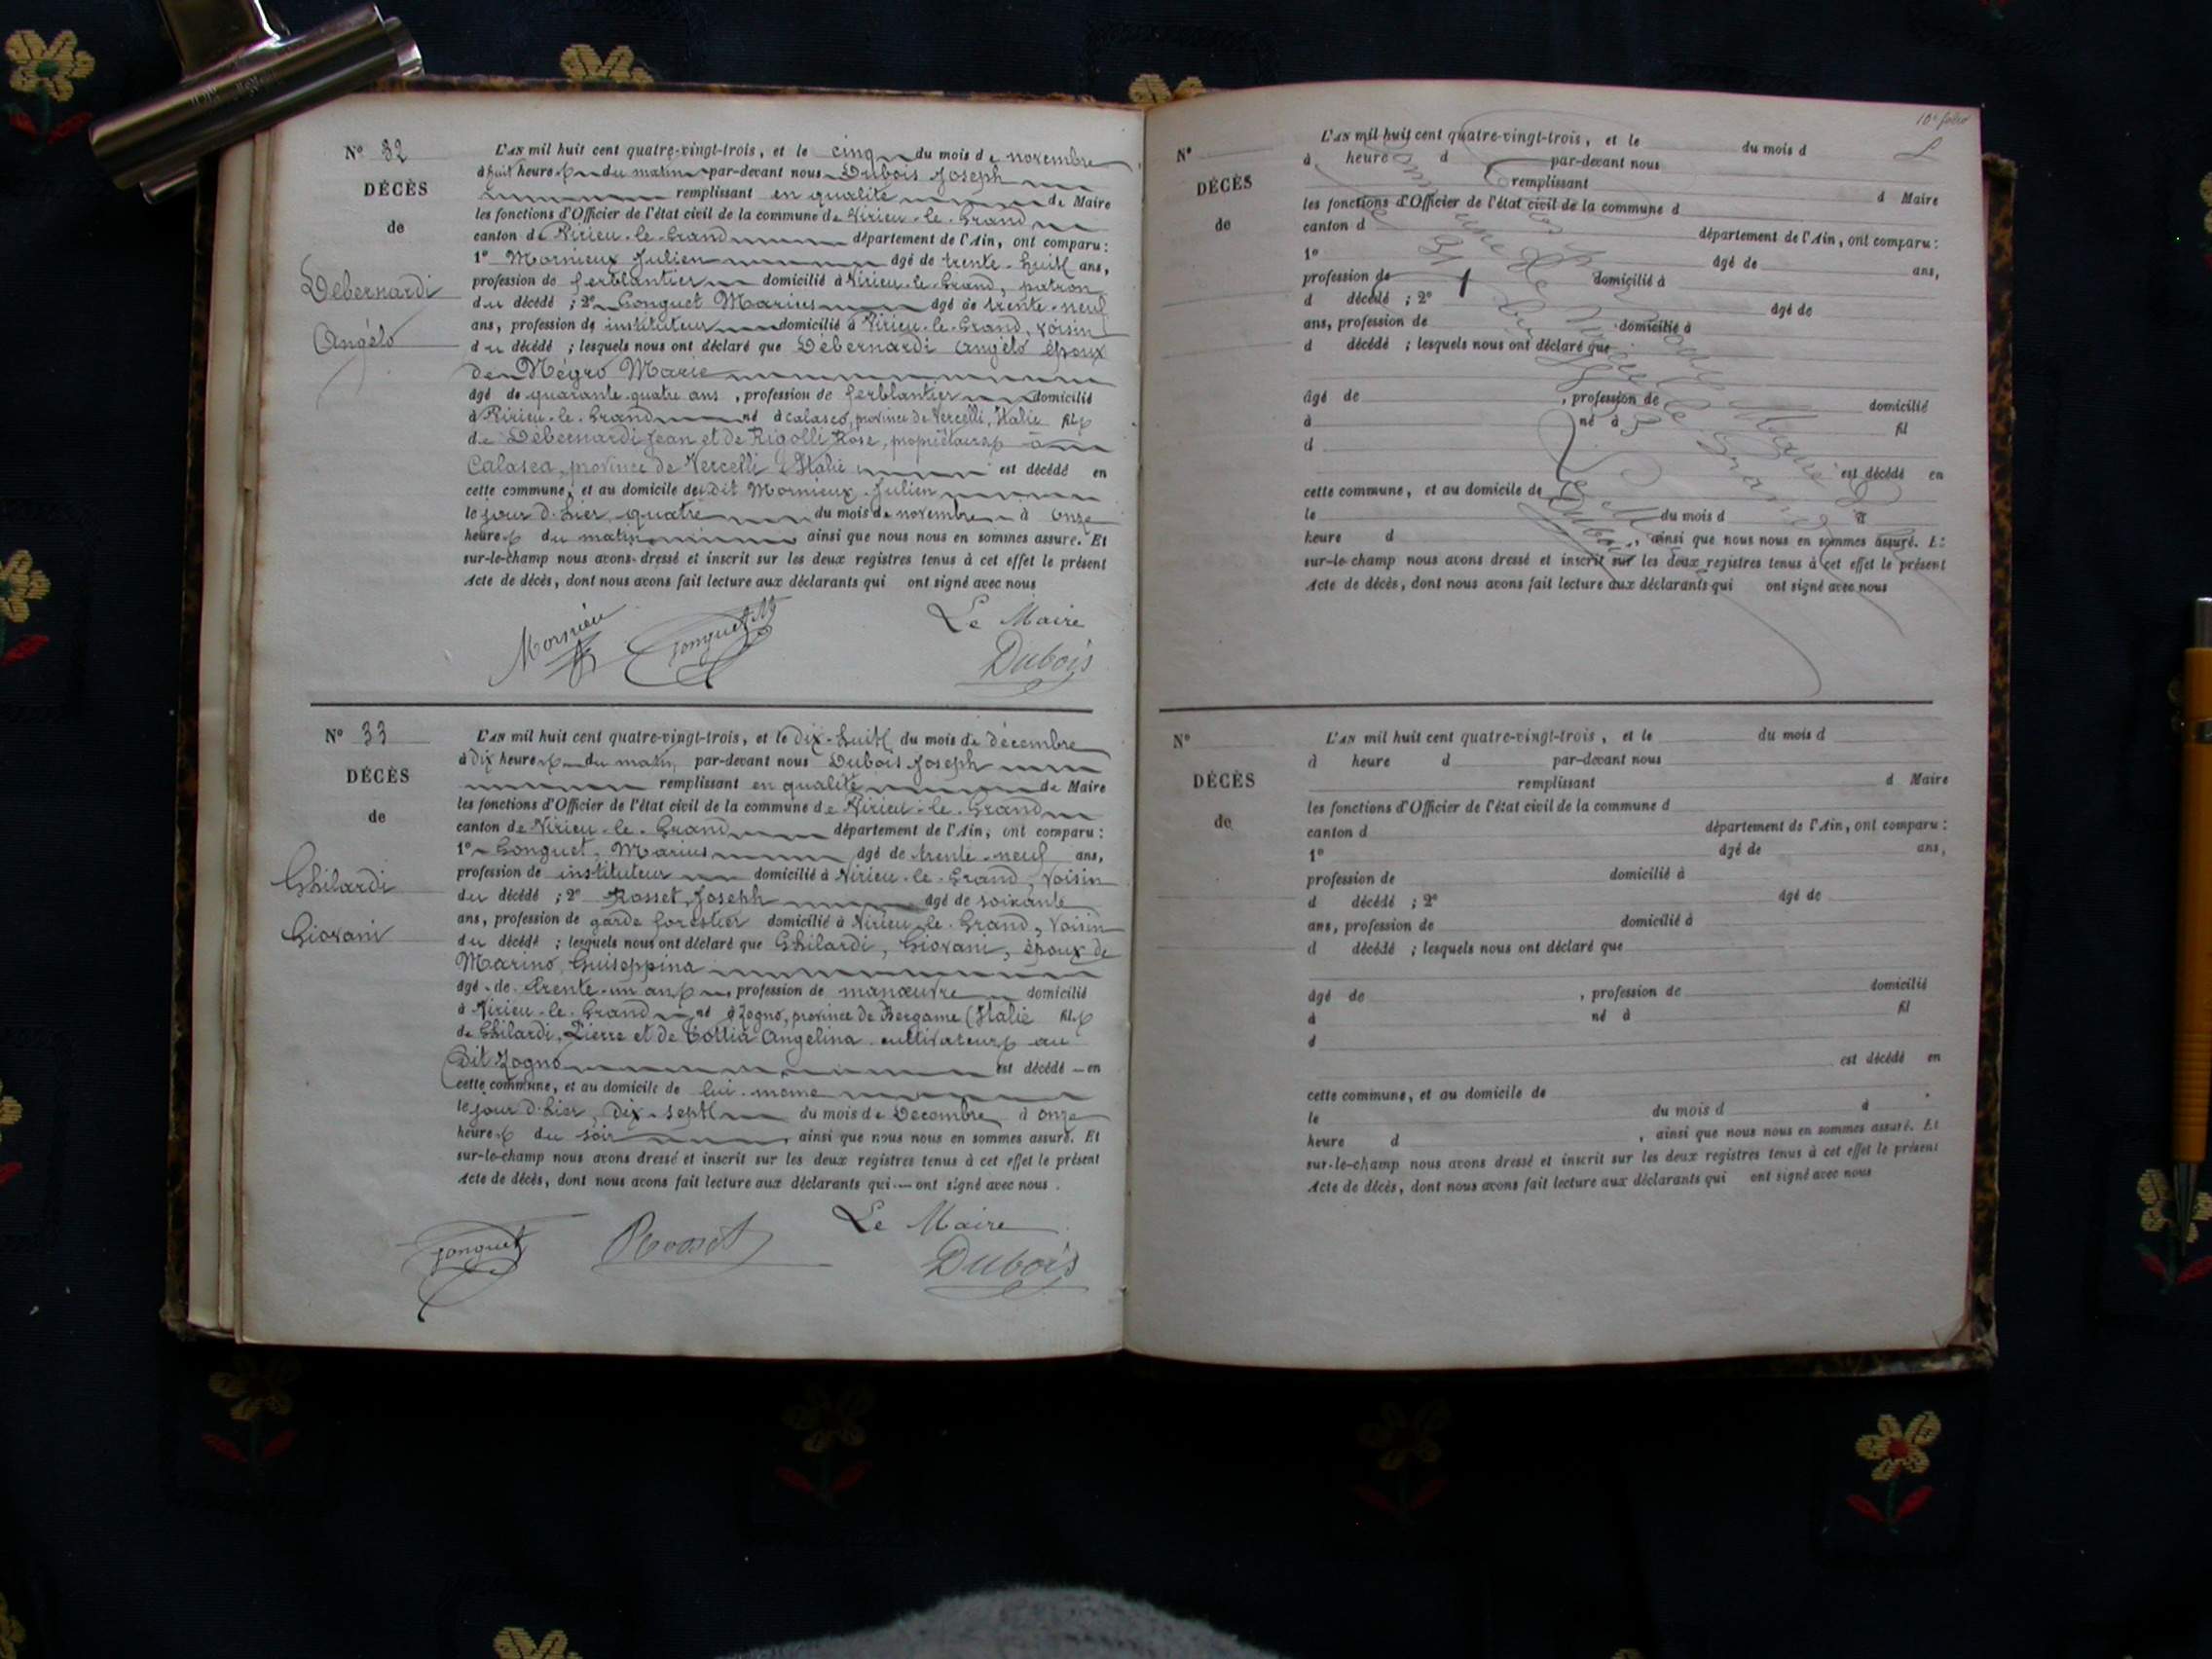 N° 32
DÉCÈS
de
Debernardi
Angélo
L'AN mil huit cent quatre-vingt-trois, et le cinq du mois de novembre
à huit heures du matin par-devant nous Dubois Joseph
remplissant en qualité de Maire
les fonctions d'Officier de l'état civil de la commune de Virieu-le-Grand
canton de Virieu-le-Grand département de l'Ain, ont comparu :
1° Mornieux Julien âgé de trente-huit ans,
profession de ferblantier domicilié à Virieu-le-Grand, patron
du décédé ; 2° Gonguet Marius âgé de trente-neuf
ans, profession de instituteur domicilié à Virieu-le-Grand, voisin
du décédé ; lesquels nous ont déclaré que Debernardi Angélo époux
de Négro Marie
âgé de quarante-quatre ans, profession de ferblantier domicilié
à Virieu-le-Grand né à Calasco, province de Vercelli, Italie fils
de Débernardi Jean et de Rigolli Rose, propriétaires à
Calasca, province de Vercelli, Italie est décédé en
cette commune, et au domicile de dit Mornieux Julien
le jour d'hier, quatre du mois de novembre à onze
heures du matin ainsi que nous nous en sommes assuré. Et
sur-le-champ nous avons dressé et inscrit sur les deux registres tenus à cet effet le présent
Acte de décès, dont nous avons fait lecture aux déclarants qui ont signé avec nous
Mornieu
Gonguet M
Le Maire
Dubois
N° 33
DÉCÈS
de
Ghilardi
Giovani
L'AN mil huit cent quatre-vingt-trois, et le dix-huit du mois de décembre
à dix heures du matin, par-devant nous Dubois Joseph
remplissant en qualité de Maire
les fonctions d'Officier de l'état civil de la commune de Virieu-le-Grand
canton de Virieu-le-Grand département de l'Ain, ont comparu :
1° Gonguet, Marius âgé de trente-neuf ans,
profession de instituteur domicilié à Virieu-le-Grand, voisin
du décédé ; 2° Rosset, Joseph âgé de soixante
ans, profession de garde forestier domicilié à Virieu-le-Grand, voisin
du décédé ; lesquels nous ont déclaré que Ghilardi, Giovani, époux de
Marino, Guiseppina
âgé de trente-un ans, profession de manœuvre domicilié
à Virieu-le-Grand né à Zogno, province de Bergame (Italie fils
de Ghilardi, Pierre et de Angelina cultivateurs au
dit Zogno est décédé en
cette commune, et au domicile de lui-même
le jour d'hier, dix-sept du mois de Décembre à onze
heures du soir, ainsi que nous nous en sommes assuré. Et
sur-le-champ nous avons dressé et inscrit sur les deux registres tenus à cet effet le présent
Acte de décès, dont nous avons fait lecture aux déclarants qui — ont signé avec nous.
Gonguet
Rosset
Le Maire
Dubois
10e folio
N°
DÉCÈS
de
L'AN mil huit cent quatre-vingt-trois, et le du mois d
à heure d par-devant nous
remplissant d Maire
les fonctions d'Officier de l'état civil de la commune d
canton d département de l'Ain, ont comparu :
1° âgé de ans,
profession de domicilié à
d décédé ; 2° âgé de
ans, profession de domicilié à
d décédé ; lesquels nous ont déclaré que
âgé de , profession de domicilié
à né à fil
d
est décédé en
cette commune, et au domicile de
le du mois d à
heure d , ainsi que nous nous en sommes assuré. Et
sur-le-champ nous avons dressé et inscrit sur les deux registres tenus à cet effet le présent
Acte de décès, dont nous avons fait lecture aux déclarants qui ont signé avec nous
N°
DÉCÈS
de
L'AN mil huit cent quatre-vingt-trois, et le du mois d
à heure d par-devant nous
remplissant d Maire
les fonctions d'Officier de l'état civil de la commune d
canton d département de l'Ain, ont comparu :
1° âgé de ans,
profession de domicilié à
d décédé ; 2° âgé de
ans, profession de domicilié à
d décédé ; lesquels nous ont déclaré que
âgé de , profession de domicilié
à né à fil
d
est décédé en
cette commune, et au domicile de
le du mois d à
heure d , ainsi que nous nous en sommes assuré. Et
sur-le-champ nous avons dressé et inscrit sur les deux registres tenus à cet effet le présent
Acte de décès, dont nous avons fait lecture aux déclarants qui ont signé avec nous